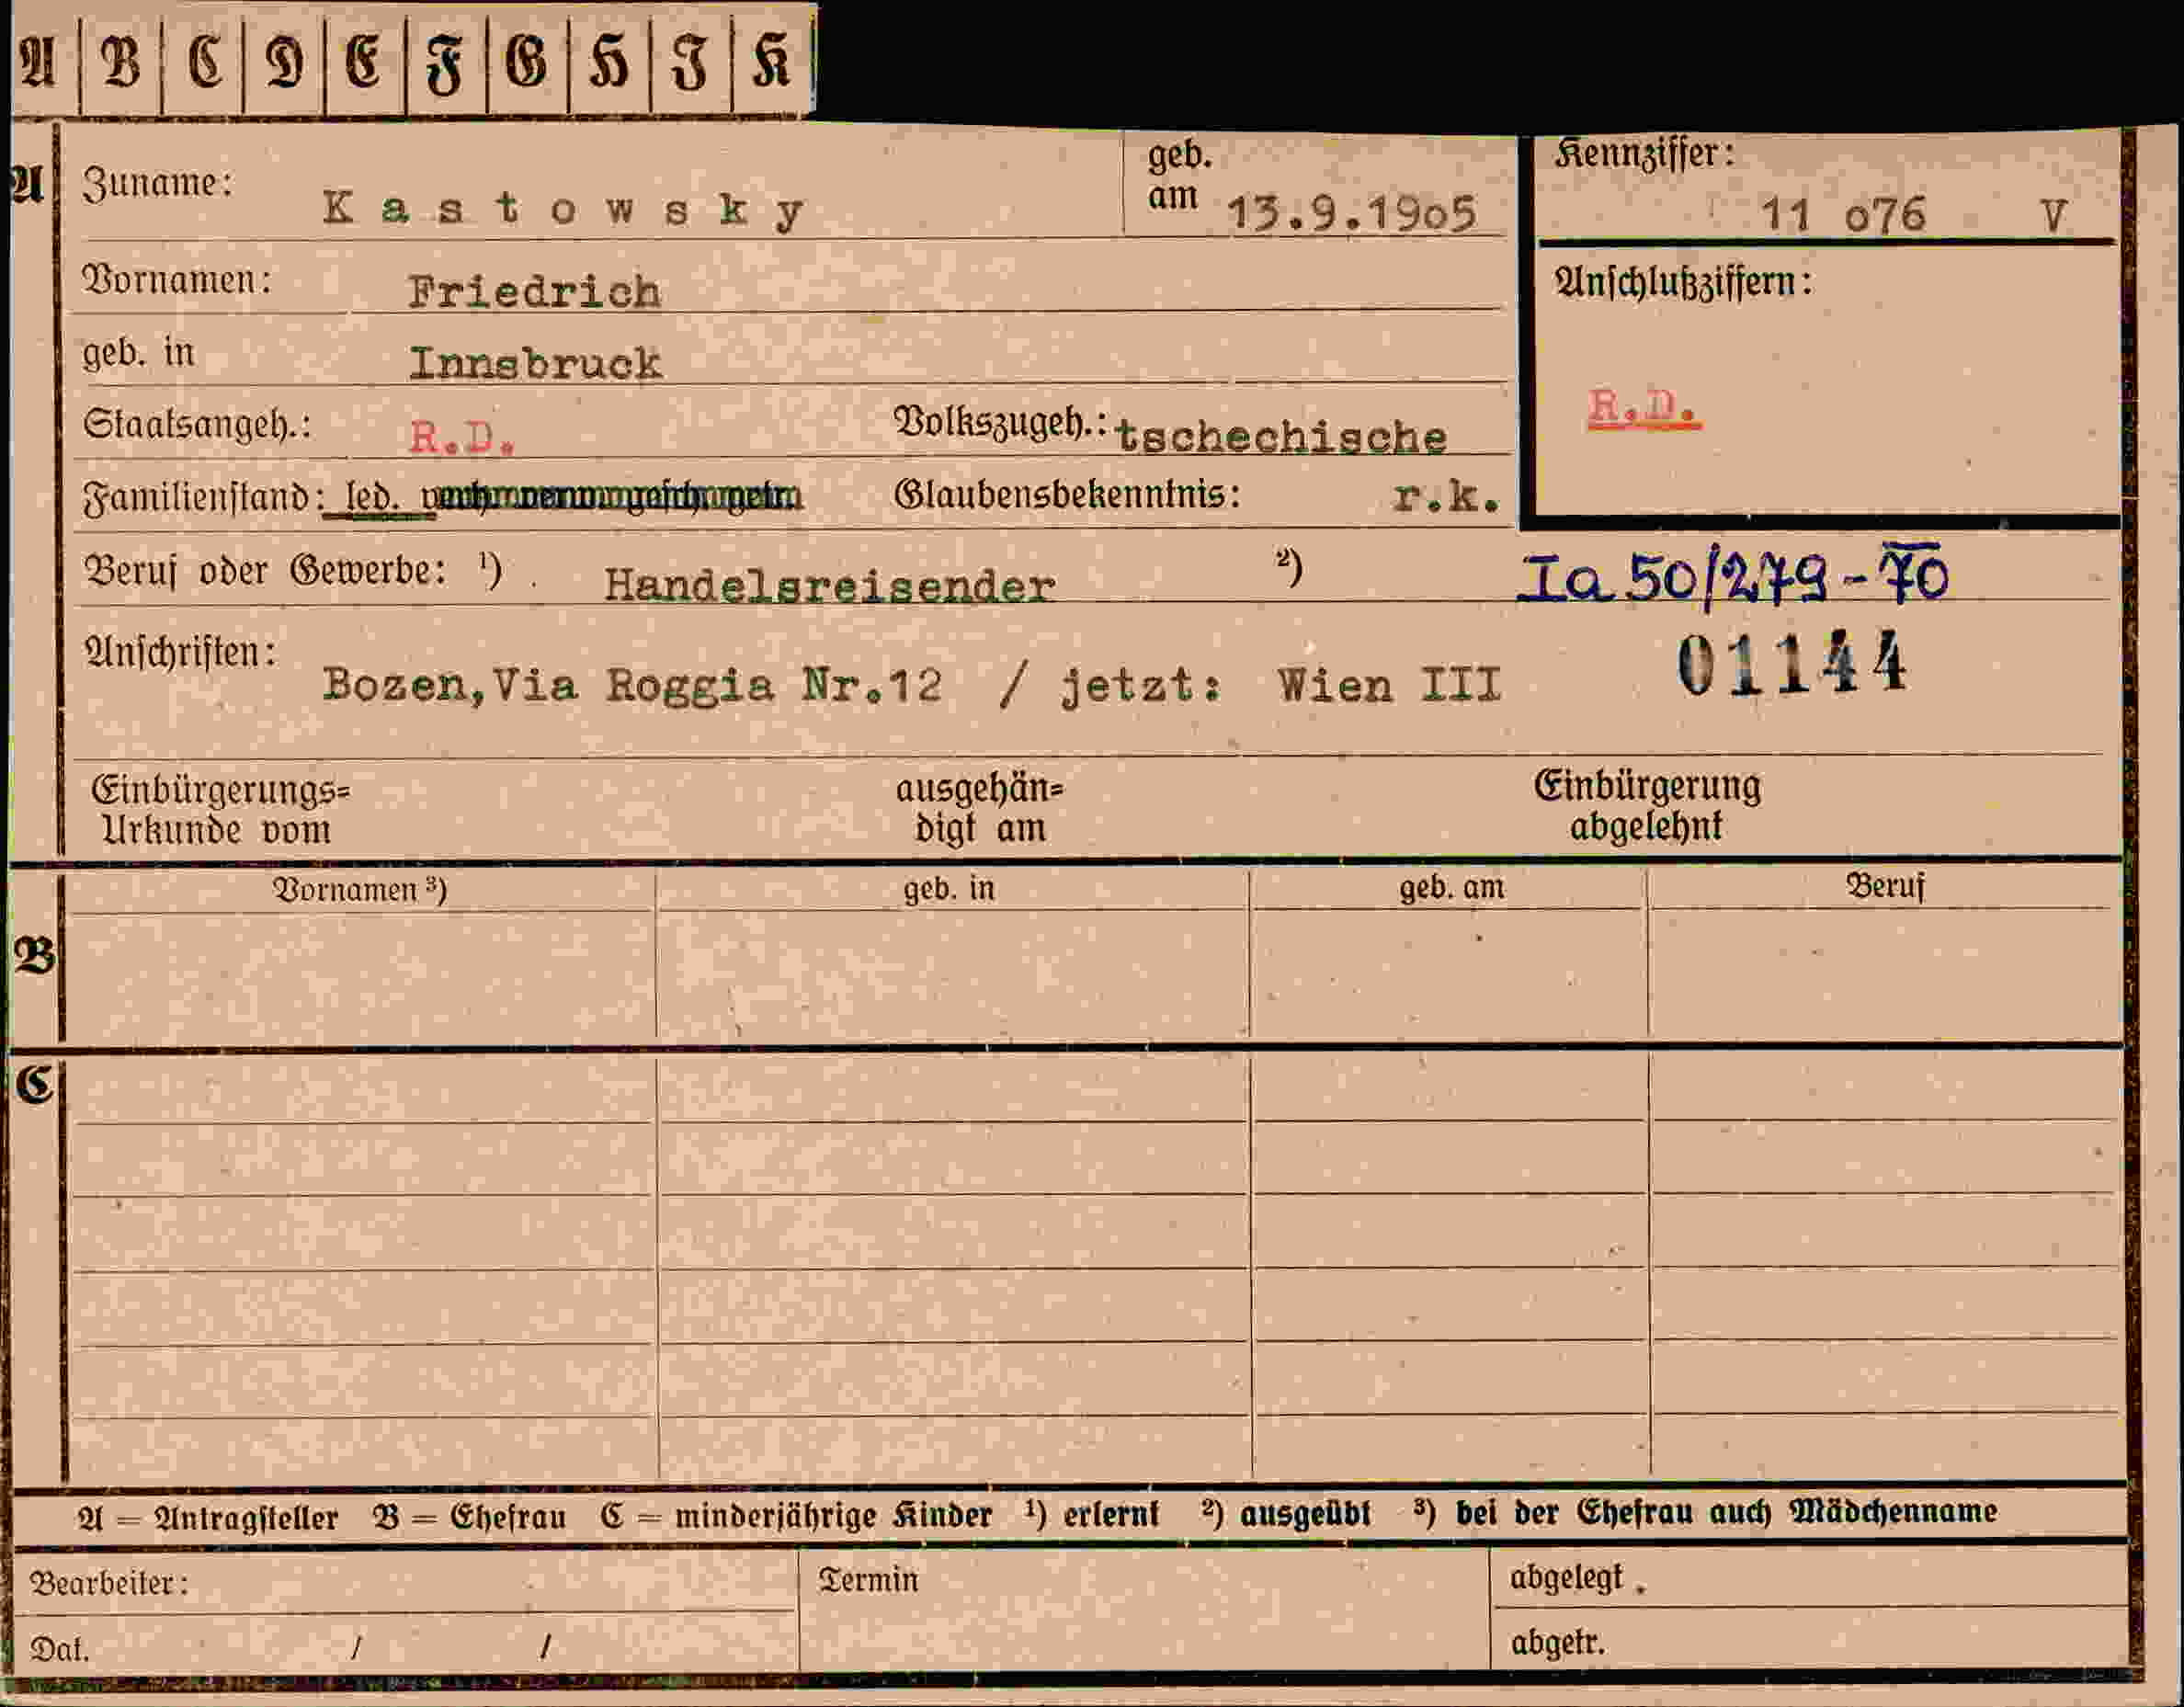 A B C D E F G H I K
A Zuname: Kastowsky geb. am 13.9.19o5 Kennziffer: 11 o76 V
Vornamen: Friedrich Anschlußziffern:
geb. in Innsbruck
Staatsangeh.: R.D. Volkszugeh.: tschechische R.D.
Familienstand: led. Glaubensbekenntnis: r.k.
Beruf oder Gewerbe: ¹) Handelsreisender ²) Ia 50/279-70
Anschriften: Bozen,Via Roggia Nr.12 / jetzt: Wien III 01144
Einbürgerungs= ausgehän= Einbürgerung
Urkunde vom digt am abgelehnt
Vornamen ³) geb. in geb. am Beruf
B
C
A = Antragsteller B = Ehefrau C = minderjährige Kinder ¹) erlernt ²) ausgeübt ³) bei der Ehefrau auch Mädchenname
Bearbeiter: Termin abgelegt .
Dat. / / abgetr.